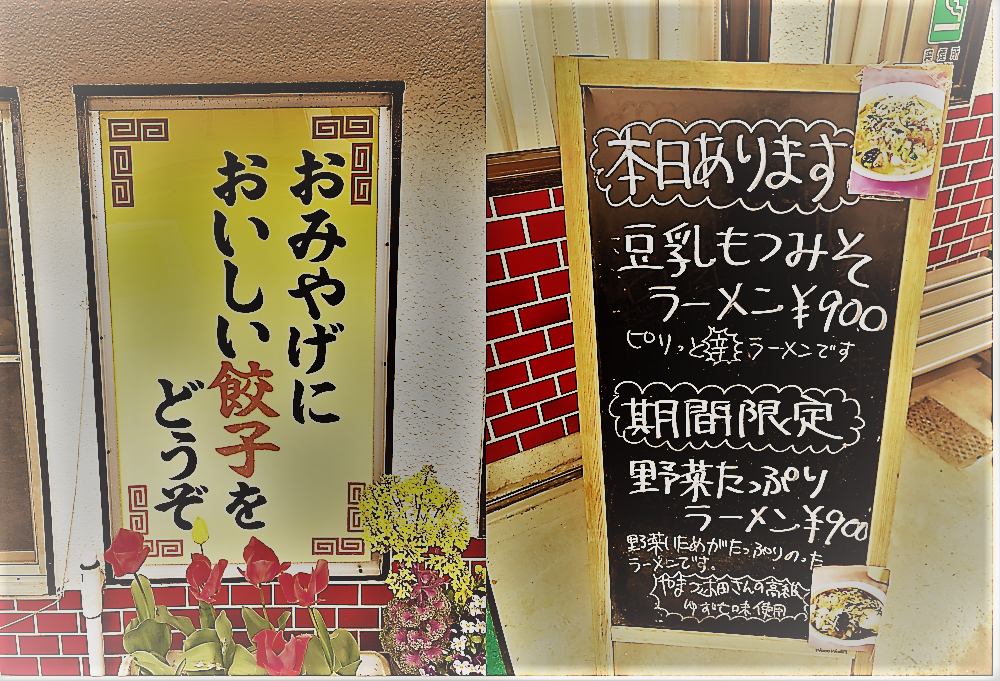 おみやげに
おいしい餃子を
どうぞ
本日あります
豆乳もつみそ
ラーメン¥900
ピリッと辛ラーメンです
期間限定
野菜たっぷり
ラーメン¥900
野菜いためがたっぷりのった
ラーメンです。
さんの高級
ゆず七味使用